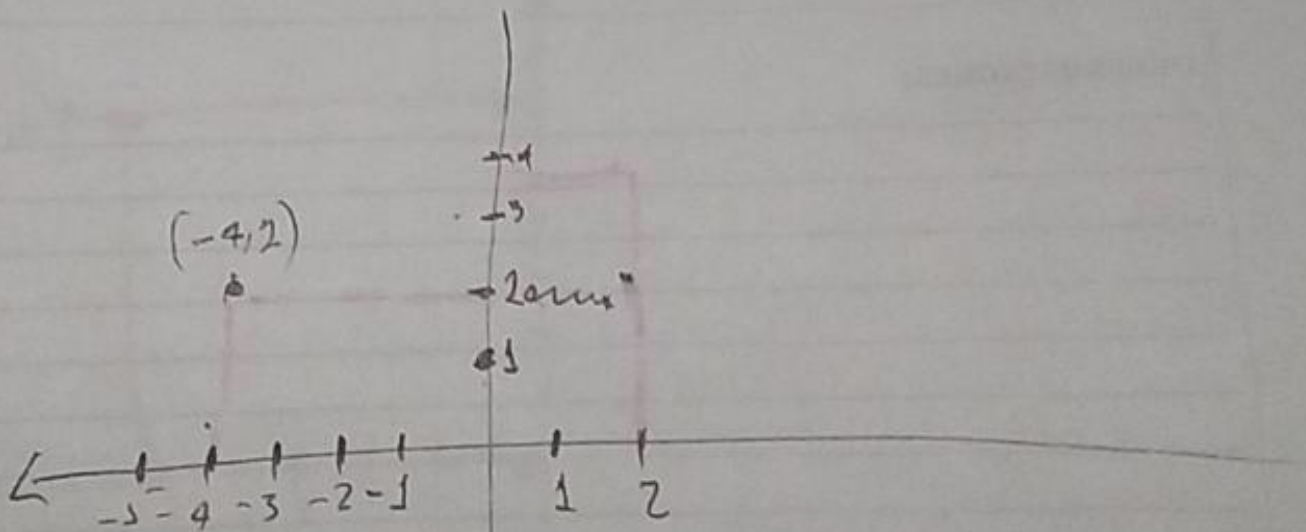 4
3
(-4,2)
2
1
-5 -4 -3 -2 -1 1 2